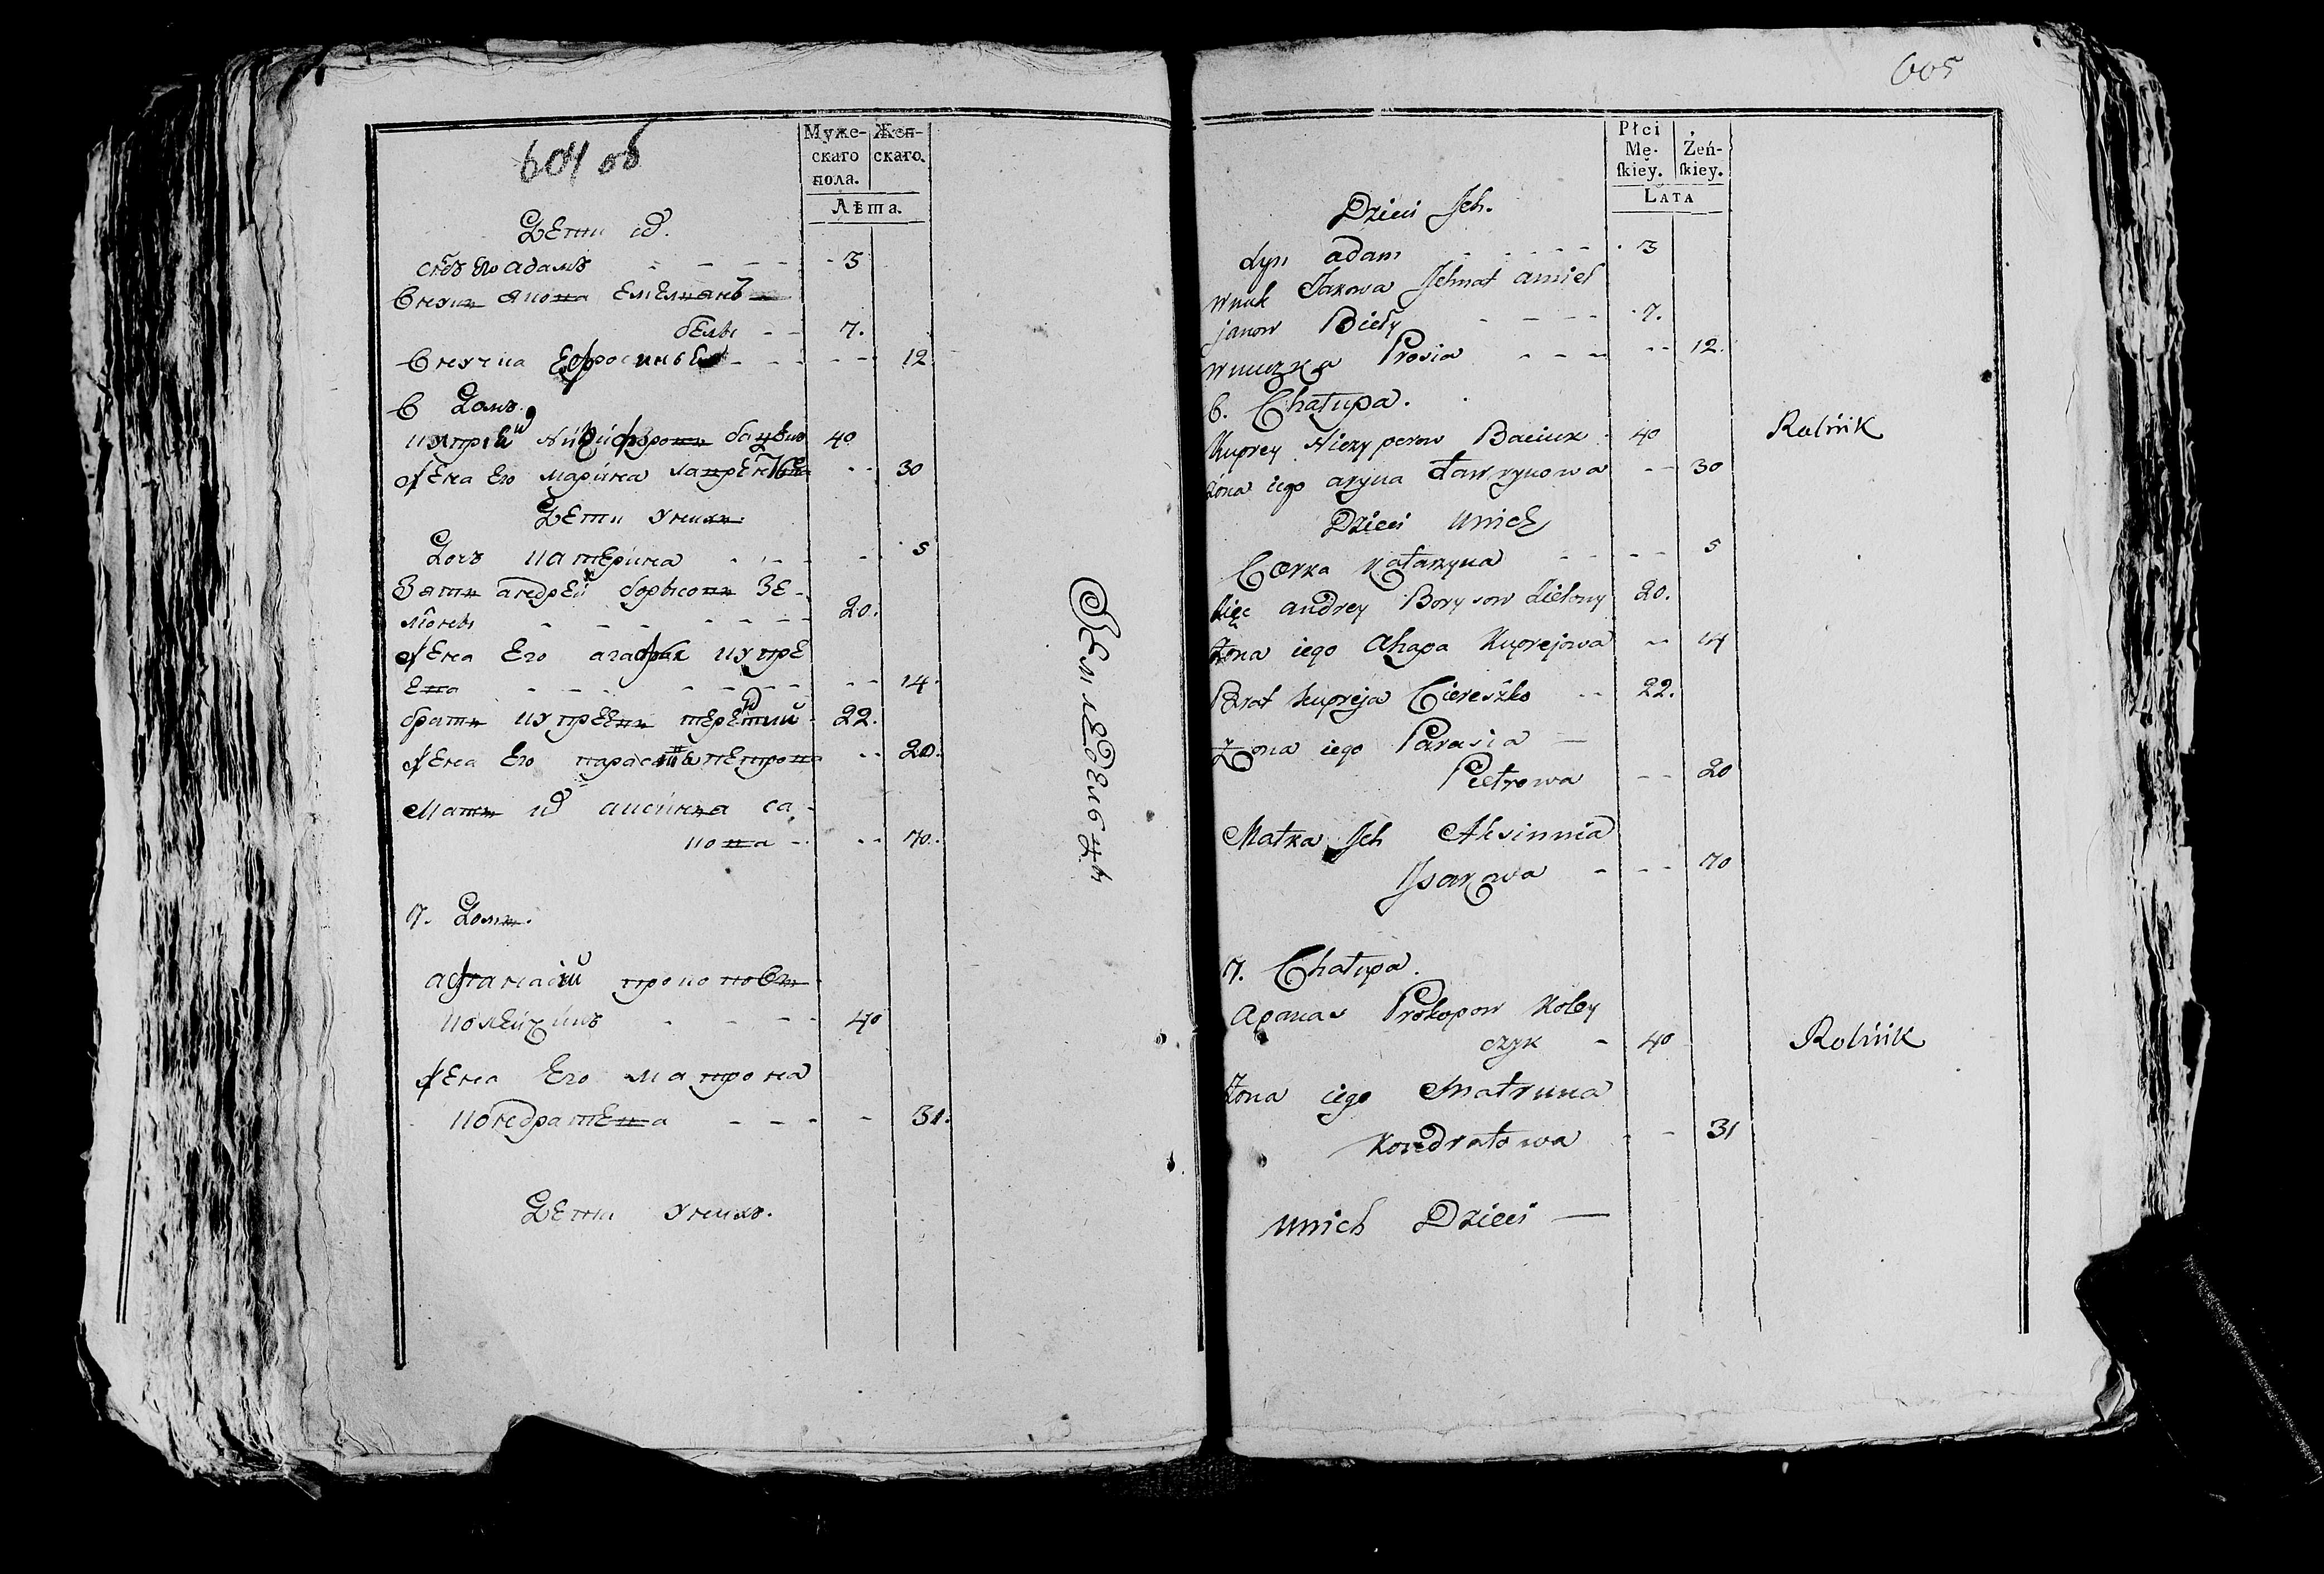 604 об
Муже- Жен-
скаго скаго.
пола.
Лѣта.
Дети их.
сынъ его адамъ - - - - 3
Внукъ якова емелианъ
белы - - 7.
Внучка Ефросинья - - - 12.
6 Домъ.
купрiй никифоровъ бацукъ 40
жена его марина лавренова - - 30
Дети унихъ
Дочь катерина - - - 5
Зять андрей борысовъ зе-
лёны - - - - - - 20.
жена Его агафия купре
ева - - - - - - 14.
братъ купреевъ терентий 22.
жена Его парасья петрова - - 20.
Мать их аксинна са-
кова - - - 70.
7. Домъ.
афанасий прокоповъ
колейчикъ - - - - 40
жена Его матрона
кондратева - - - - 31.
Дети унихъ.
Земледѣльцѣ
605
Płci
Mę- Żeń-
skiey. skiey.
LATA
Dzieci Ich.
Syn adam - - - - 3
Wnuk Jakowa Ichnat amiel
janow Bieły - - - - 7.
Wnuczka Prosia - - - - - 12.
6. Chałupa.
Kuprey Niczyporow Baciuk - 40 Rolnik
Żona iego aryna Ławrynowa - - 30
Dzieci Unich
Corka Katarzyna - - - - 5
Zięc andrey Borysow Zielony 20.
Żona iego Ahapa Kuprejowa - - 14
Brat kupreja Ciereszko - - 22.
Żona iego Parasia -
Pietrowa - - 20
Matka Ich Aksinnia
Isakowa - - - 70
7. Chałupa.
Apanas Prokopow Koley
czyk - 40 Rolnik
Żona iego Matruna
Kondratowa - - 31
unich Dzieci -